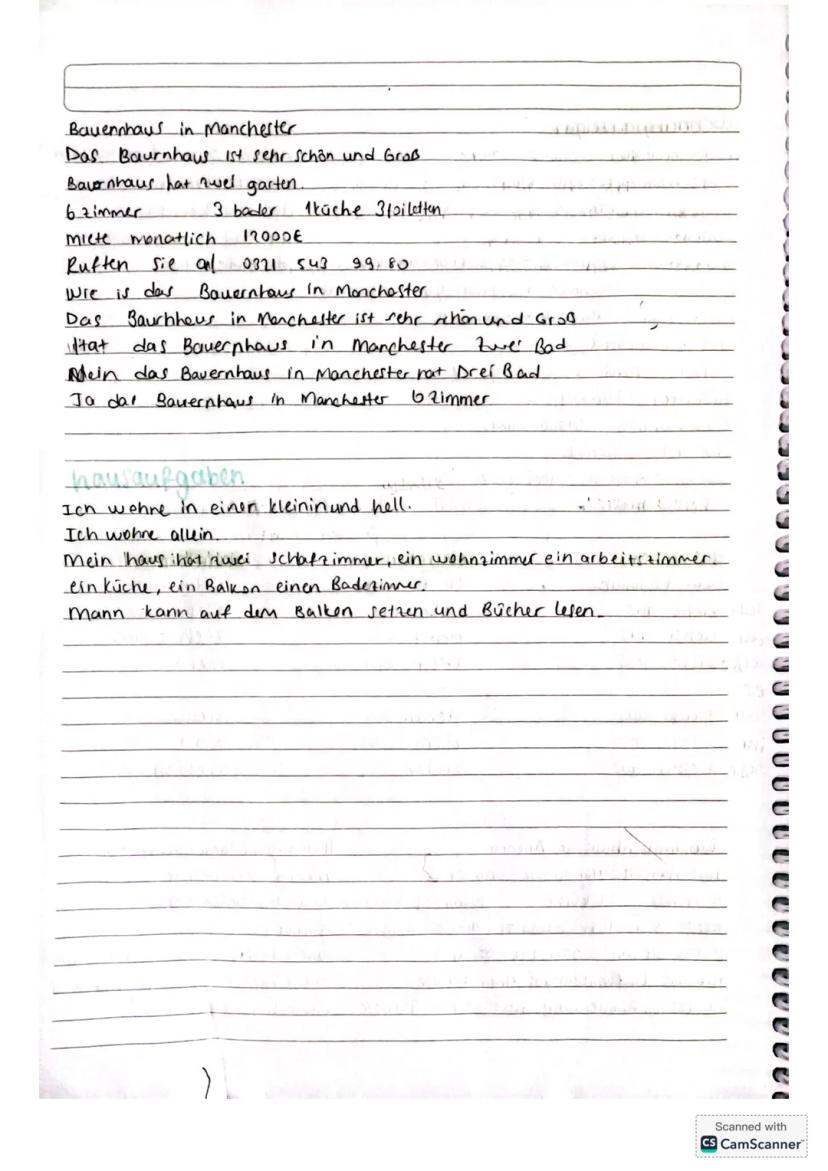 Bauennhaus in Manchester
Das Baurnhaus ist sehr schön und Groß
Bauornhaus hat zwei garten.
6 zimmer 3 bader 1 küche 3 toiletten
miete monatlich 12000€
Ruften Sie an 0321 543 99.80
Wie is das Bauernhaus in Manchester
Das Baurhhaus in Manchester ist sehr schön und Groß
Hat das Bauernhaus in Manchester zwei Bad
Nein das Bauernhaus in Manchester hat Drei Bad
Ja das Bauernhaus in Manchester 6 zimmer
hausaufgaben
Ich wohne in einen kleinin und hell.
Ich wohne allein.
Mein haus hat zwei schafzimmer, ein wohnzimmer ein arbeitszimmer.
ein küche, ein Balkon einen Badezimer.
Mann kann auf dem Balkon setzen und Bücher lesen.
Scanned with
CS CamScanner